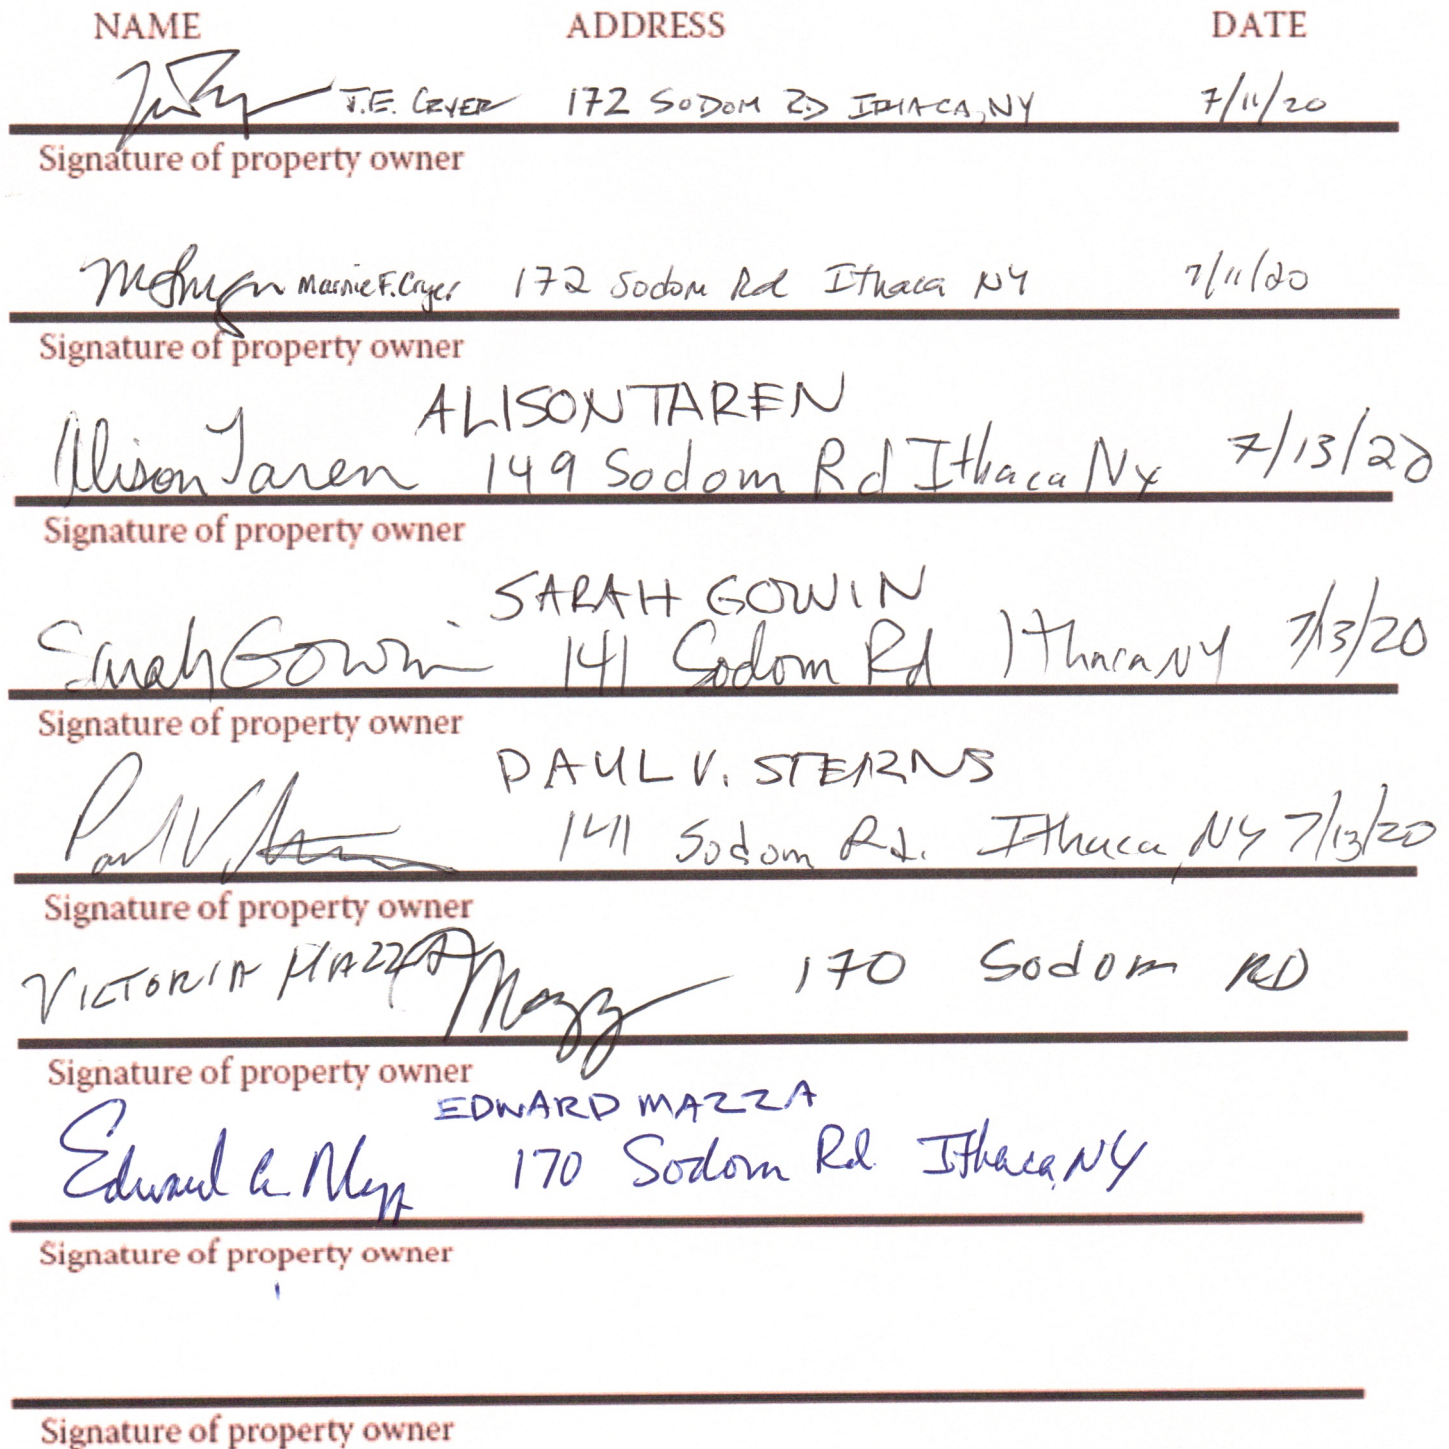 NAME ADDRESS DATE
J.E. CRYER 172 SODOM RD ITHACA, NY 7/11/20
Signature of property owner
Marnie F. Cryer 172 Sodom Rd Ithaca NY 7/11/20
Signature of property owner
ALISON TAREN
Alison Taren 149 Sodom Rd Ithaca Ny 7/13/20
Signature of property owner
SARAH GOWIN
Sarah Gowin 141 Sodom Rd Ithaca NY 7/13/20
Signature of property owner
PAUL V. STERNS
Paul V. 141 Sodom Rd. Ithaca, NY 7/13/20
Signature of property owner
VICTORIA MAZZA Mazz 170 Sodom RD
Signature of property owner
EDWARD MAZZA
Edward a Mazza 170 Sodom Rd. Ithaca, NY
Signature of property owner
Signature of property owner